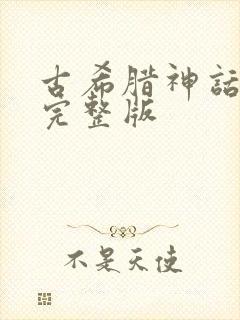 古希腊神話
完整版
不是天使